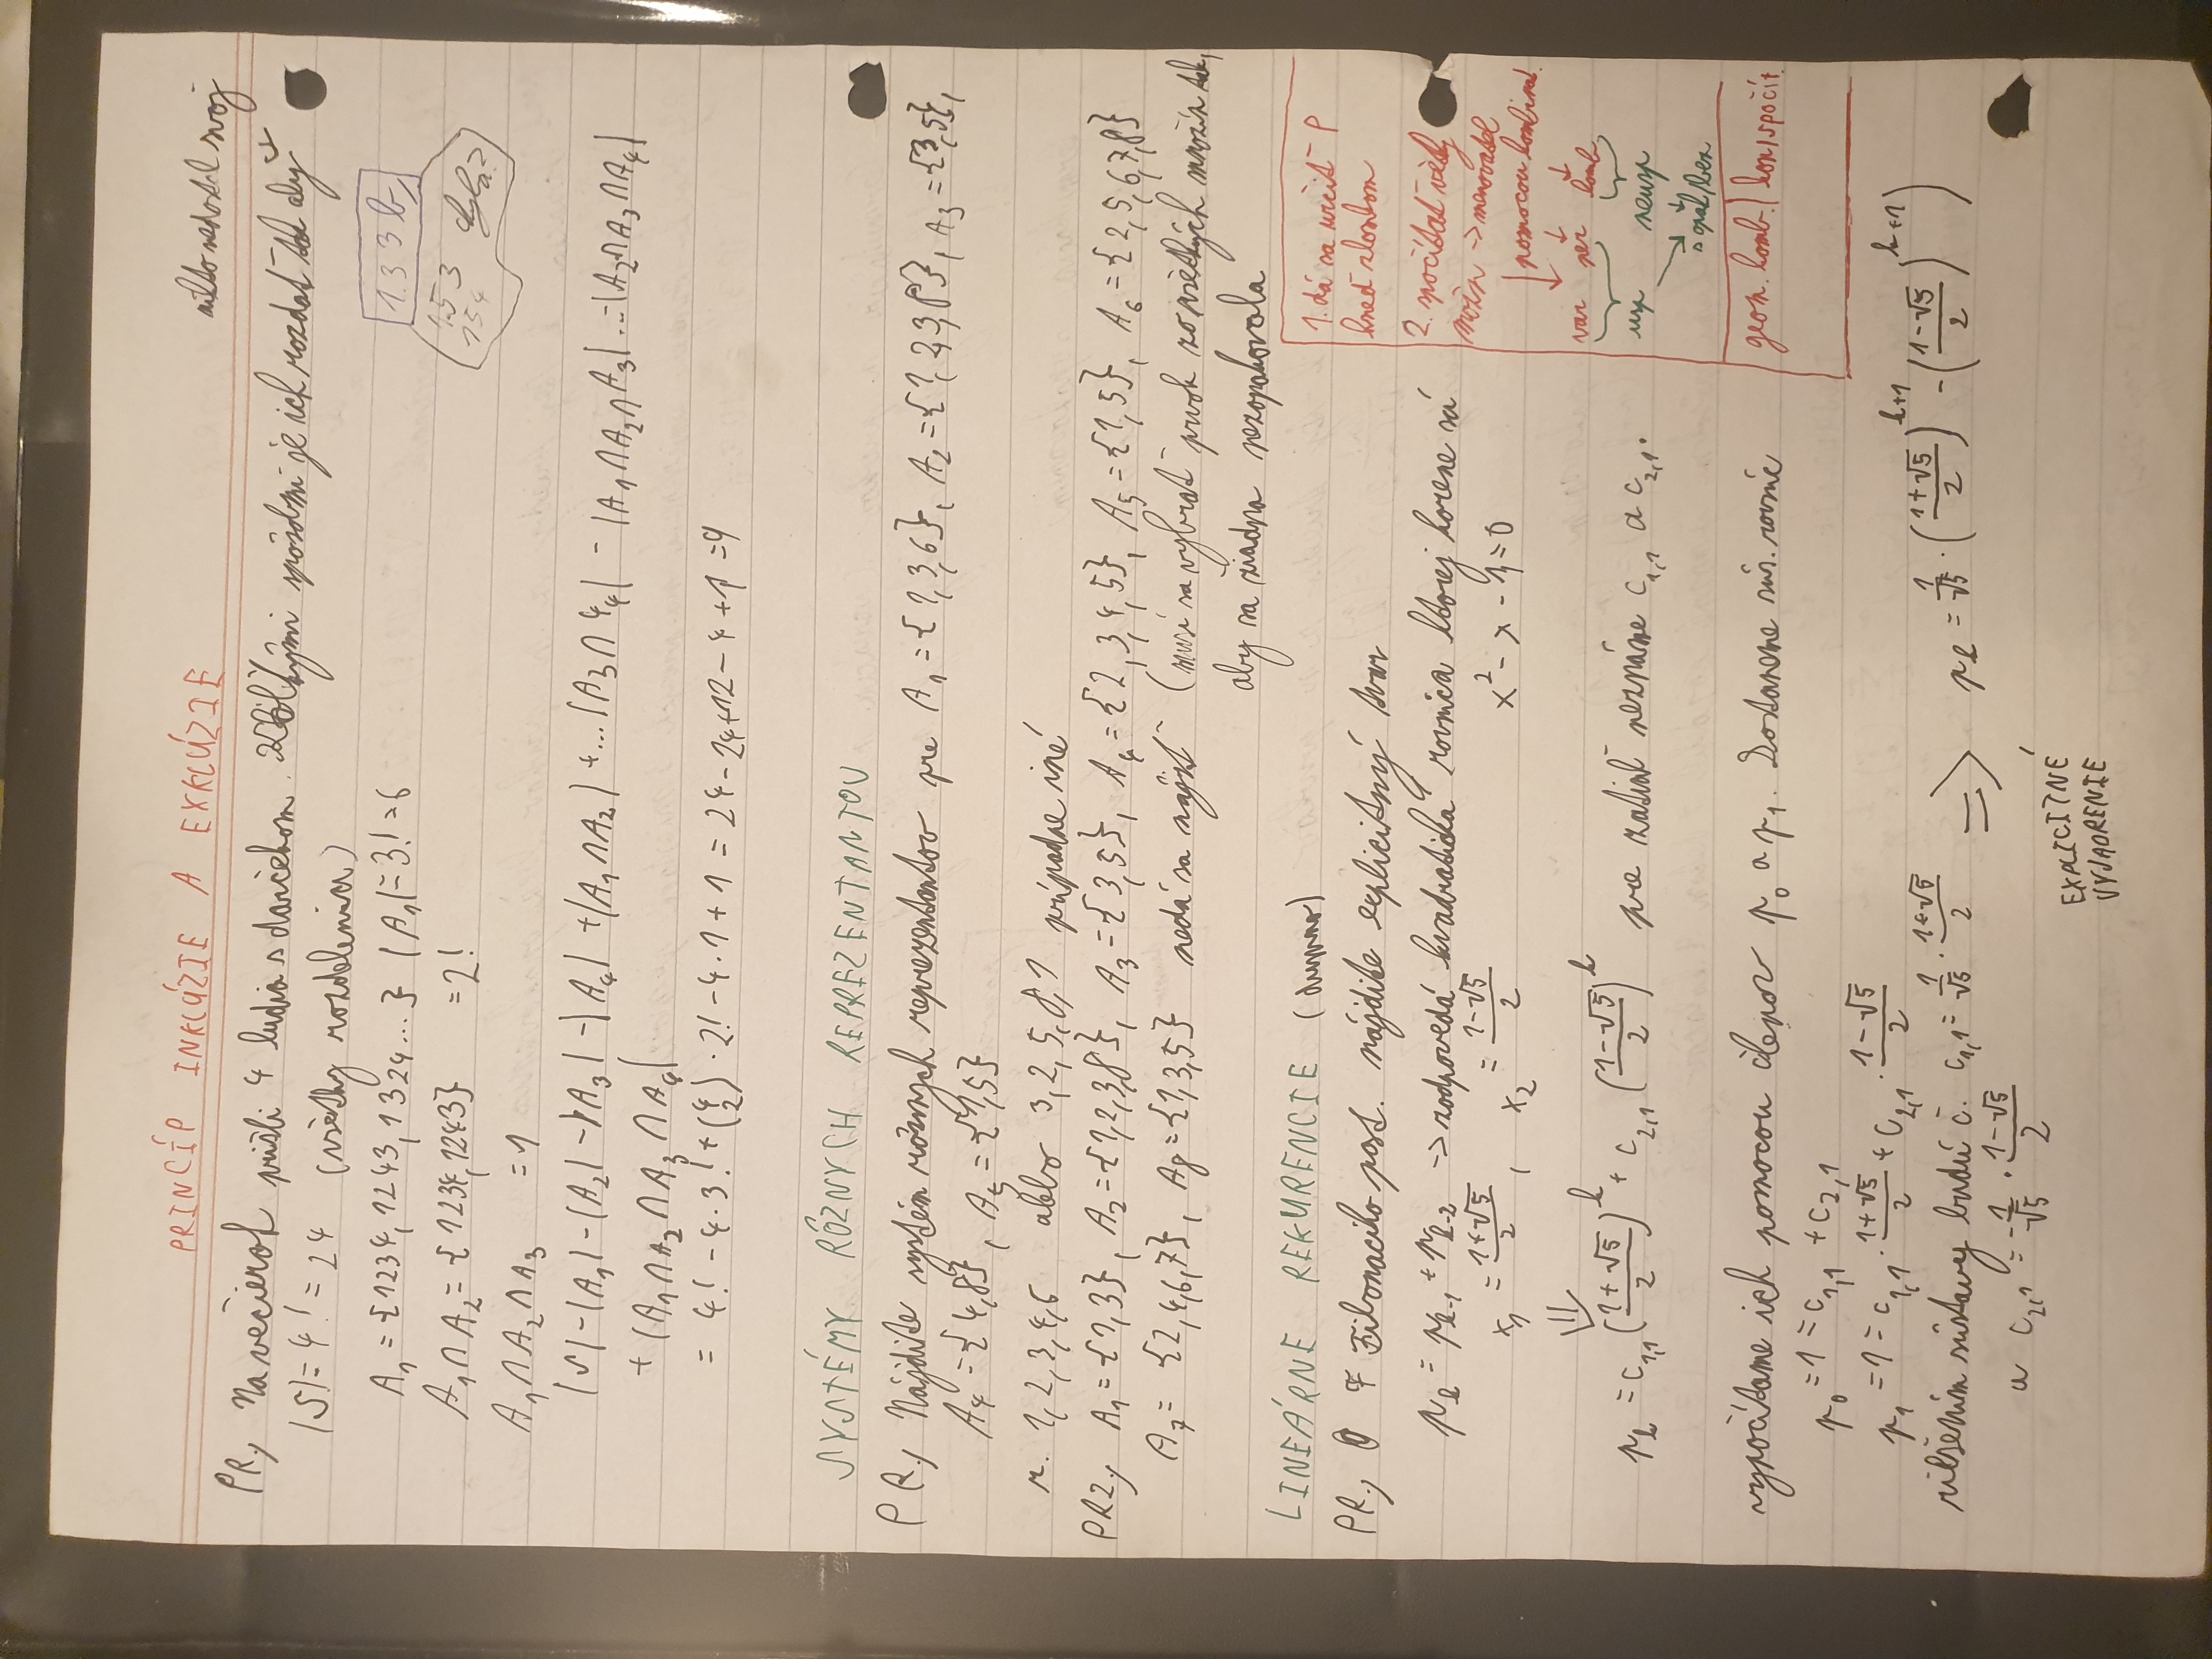 PRINCÍP INKLÚZIE A EXKLÚZIE
nikto nedostal svoj
PR., Na večierok prišli 4 ludia s darčekom. Koľkými spôsobmi je ich rozdať tak aby
|S| = 4! = 24 (všetky rozdelenia)
A₁ = {1234, 1243, 1324...} |A₁| = 3! = 6
1.3 3 b,
A₁∩A₂ = {1234, 1243} = 2!
153 chyba?
154
A₁∩A₂∩A₃ = 1
|S| - |A₁| - |A₂| - |A₃| - |A₄| + |A₁∩A₂| + ... |A₃∩A₄| - |A₁∩A₂∩A₃| ... - |A₂∩A₃∩A₄|
+ |A₁∩A₂∩A₃∩A₄|
= 4! - 4·3! + (4 2)·2! - 4·1 + 1 = 24 - 24 + 12 - 4 + 1 = 9
SYSTÉMY RÔZNYCH REPREZENTANTOV
PR., Nájdite systém rôznych reprezentantov pre A₁ = {1,3,6}, A₂ = {1,2,3,8}, A₃ = {3,5},
A₄ = {4,8}, A₅ = {1,5}
r. 1,2,3,4,6 alebo 3,2,5,8,1 prípadne iné
PR2., A₁ = {1,3}, A₂ = {1,2,3,8}, A₃ = {3,5}, A₄ = {2,3,4,5}, A₅ = {1,5}, A₆ = {2,5,6,7,8}
A₇ = {2,4,6,7}, A₈ = {1,3,5} nedá sa nájsť (musí sa vybrať prvok zo všetkých množín tak,
aby sa žiadna nezopakovala
LINEÁRNE REKURENCIE
PR., F Fibonaciho post. nájdite explicitný tvar
pₖ = pₖ₋₁ + pₖ₋₂ -> zodpovedá kvadratická rovnica ktorej korene sú
x₁ = (1+√5)/2, x₂ = (1-√5)/2 x² - x - 1 = 0
⇓
pₖ = c₁,₁ ((1+√5)/2)ᵏ + c₂,₁ ((1-√5)/2)ᵏ pre zatiaľ neznáme c₁,₁ a c₂,₁.
vypočítame ich pomocou členov p₀ a p₁. Dostaneme sús. rovníc
p₀ = 1 = c₁,₁ + c₂,₁
p₁ = 1 = c₁,₁ · (1+√5)/2 + c₂,₁ · (1-√5)/2
riešením sústavy budú č. c₁,₁ = 1/√5 · (1+√5)/2 => pₖ = 1/√5 · ((1+√5)/2)ᵏ⁺¹ - ((1-√5)/2)ᵏ⁺¹)
a c₂,₁ = -1/√5 · (1-√5)/2
EXPLICITNÉ
VYJADRENIE
1. dá sa určiť P
hneď zlomkom
2. spočítať všetky
možn -> menovateľ
pomocou kombinat.
var per komb
usp neusp
s opak/bez
geom. komb. | kon/spočít.